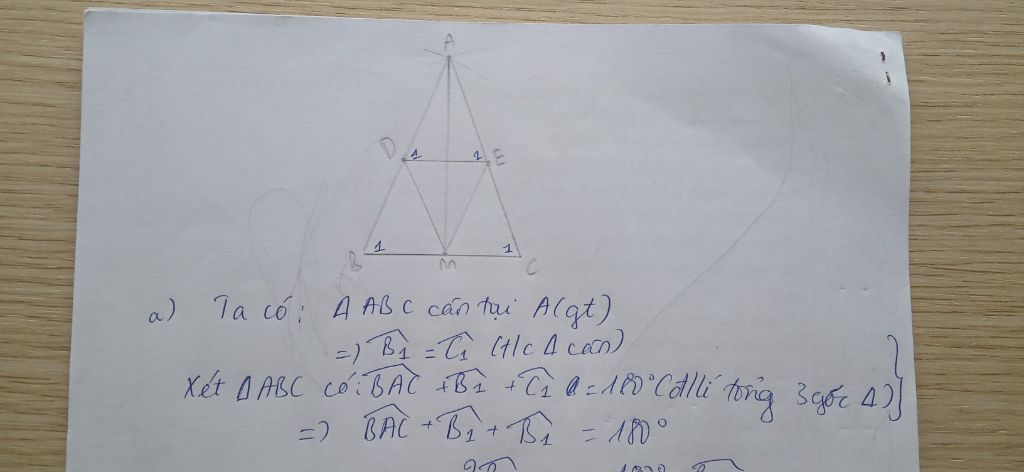 A
D 1 1 E
B 1 M 1 C
a) Ta có: Δ ABC cân tại A(gt)
=) B1 = C1 (t/c Δ cân)
Xét ΔABC có: BAC + B1 + C1 = 180° (đ/lí tổng 3 góc Δ)
=) BAC + B1 + B1 = 180°